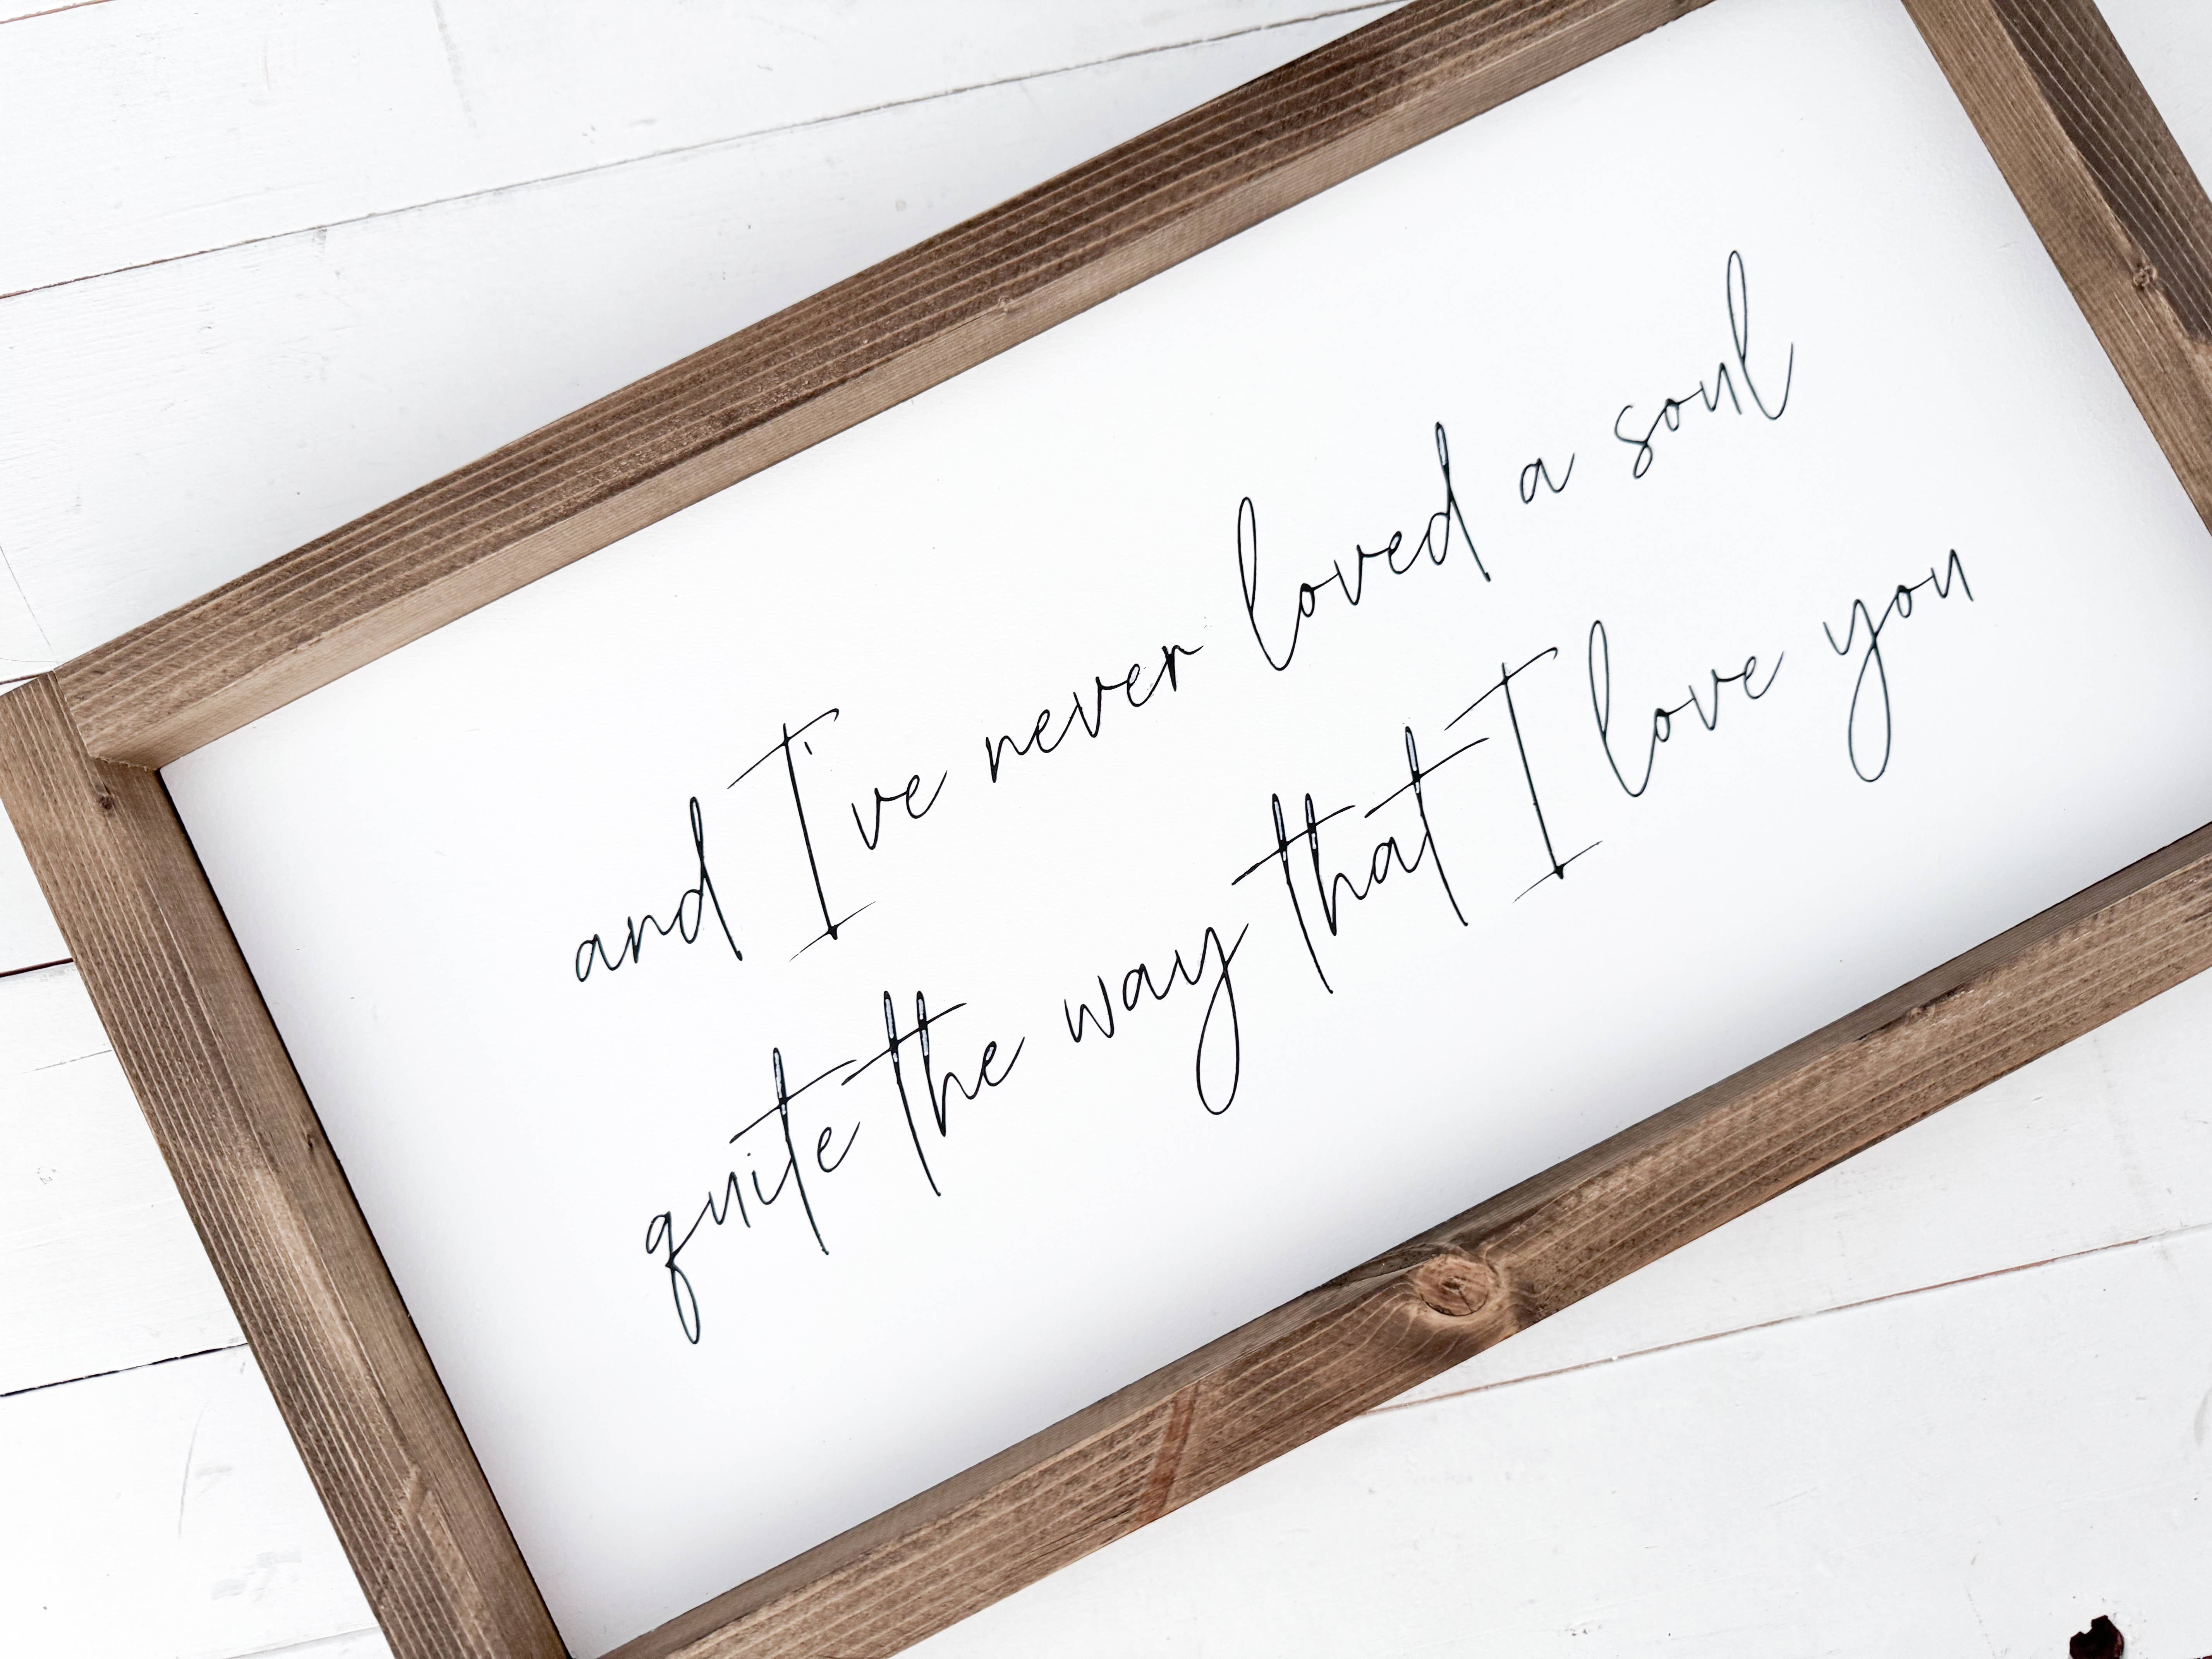 and I've never loved a soul
quite the way that I love you